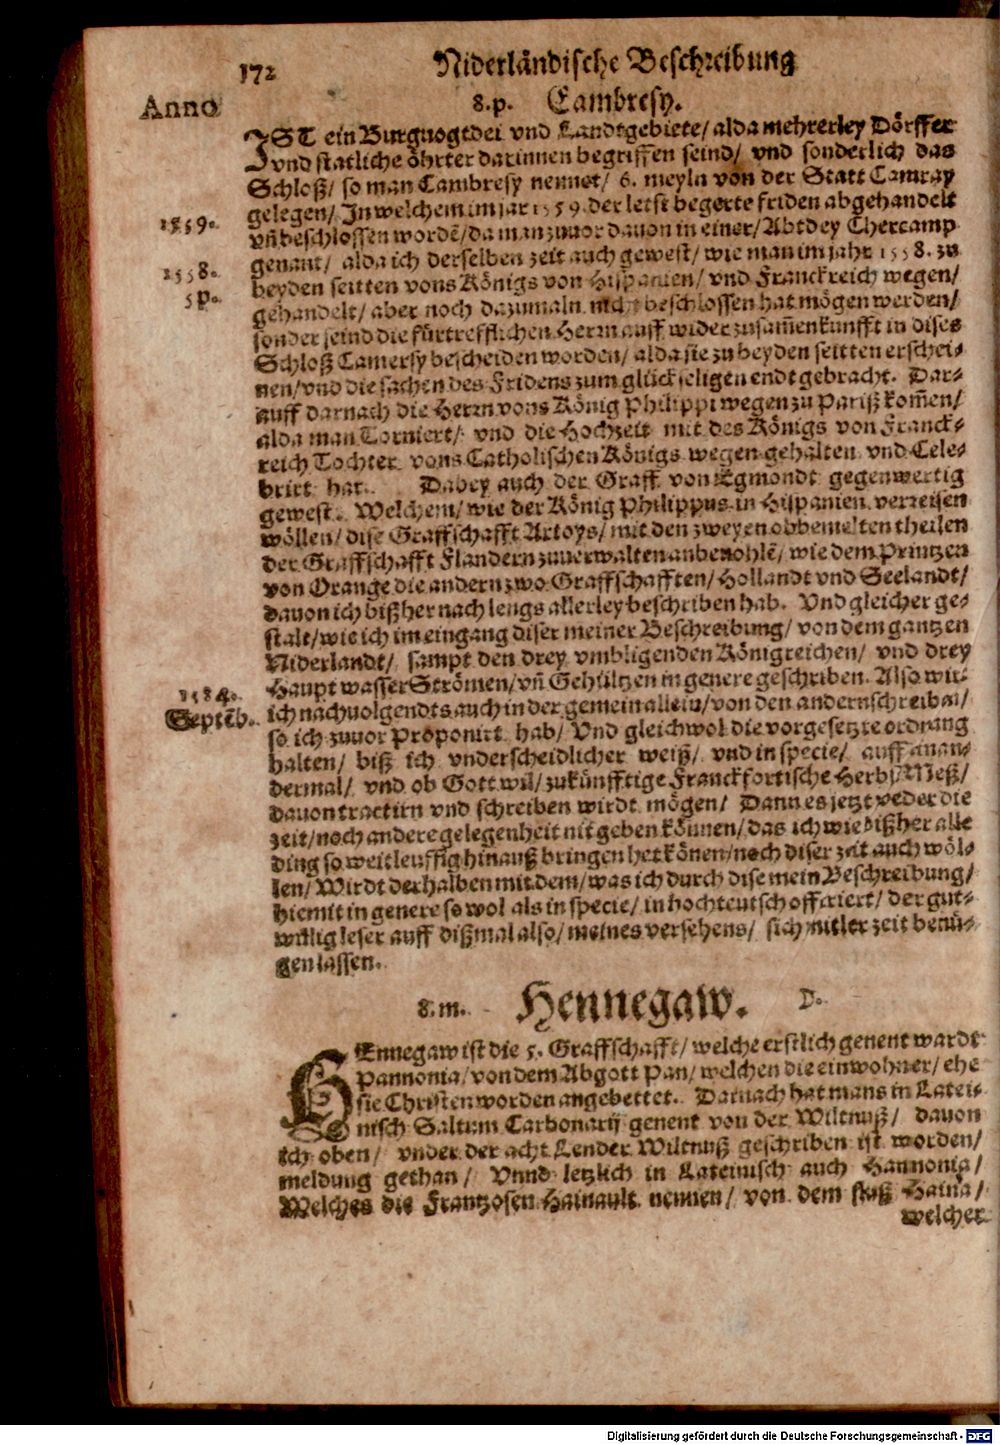 172 Niderländische Beschreibung
Anno
8.p. Cambresy.
IST ein Burgvogtdei vnd Landtgebiete/ alda mehrerley Dörffer
vnd statliche öhrter darinnen begriffen seind/ vnd sonderlich das
Schloß/ so man Cambresy nennet/ 6. meyln von der Statt Camray
gelegen/ In welchem im jar 1559. der letst begerte friden abgehandelt
1559.
vñ beschlossen wordẽ/ da man zuuor dauon in einer/ Abtdey Chercamp
genant/ alda ich derselben zeit auch gewest/ wie man im jahr 1558. zu
1558.
beyden seitten vons Königs von Hispanien/ vnd Franckreich wegen/
5p.
gehandelt/ aber noch dazumaln nicht beschlossen hat mögen werden/
sonder seind die fürtrefflichen Herrn auff wider zusam̃enkunfft in dises
Schloß Camersy bescheiden worden/ alda sie zu beyden seitten erschei-
nen/ vnd die sachen des Fridens zum glückseligen endt gebracht. Dar-
auff darnach die Herrn vons König Philippi wegen zu Pariß kom̃en/
alda man Torniert/ vnd die Hochzeit mit des Königs von Franck-
reich Tochter vons Catholischen Königs wegen gehalten vnd Cele-
brirt hat. Dabey auch der Graff von Egmondt gegenwertig
gewest. Welchem/ wie der König Philippus in Hispanien verreisen
wöllen/ dise Graffschafft Artoys/ mit den zweyen obbemelten theilen
der Graffschafft Flandern zuuerwalten anbeuohlẽ/ wie dem Printzen
von Orange die andern zwo Graffschafften/ Hollandt vnd Seelandt/
dauon ich bißher nach lengs allerley beschriben hab. Vnd gleicher ge-
stalt/ wie ich im eingang diser meiner Beschreibung/ von dem gantzen
Niderlandt/ sampt den drey vmbligenden Königreichen/ vnd drey
Haupt wasser Strömen/ vñ Gehültzen in genere geschriben. Also wir-
1584.
ich nachuolgendts auch in der gemein allein/ von den andern schreiben/
Septẽb.
so ich zuuor Proponirt hab/ Vnd gleichwol die vorgesetzte ordnung
halten/ biß ich vnderscheidlicher weiß/ vnd in specie/ auff anan-
dermal/ vnd ob Gott wil/ zukünfftige Franckfortische Herbst Meß/
dauon tractirn vnd schreiben wirdt mögen/ Dann es jetzt weder die
zeit/ noch andere gelegenheit nit geben können/ das ich wie bißher alle
ding so weitleuffig hinauß bringen het könen/ noch diser zeit auch wöl-
len/ Wirdt derhalben mit dem/ was ich durch dise mein Beschreibung/
hiemit in genere so wol als in specie/ in hochteutsch offeriert/ der gut-
willig leser auff dißmal also/ meines versehens/ sich mitler zeit benü-
gen lassen.
8.m. Hennegaw. D.
HEnnegaw ist die 5. Graffschafft/ welche erstlich genent wardt
Pannonia/ von dem Abgott Pan/ welchen die einwohner/ ehe
sie Christen worden angebettet. Darnach hat mans in Latei-
nisch Saltum Carbonarij genent von der Wiltnuß/ dauon
ich oben/ vnder der acht Lender Wiltnuß geschriben ist worden/
meldung gethan/ Vnnd letzlich in Lateinisch auch Hannonia/
Welches die Frantzosen Hainault nennen/ von dem fluß Haina/
welcher
Digitalisierung gefördert durch die Deutsche Forschungsgemeinschaft - DFG